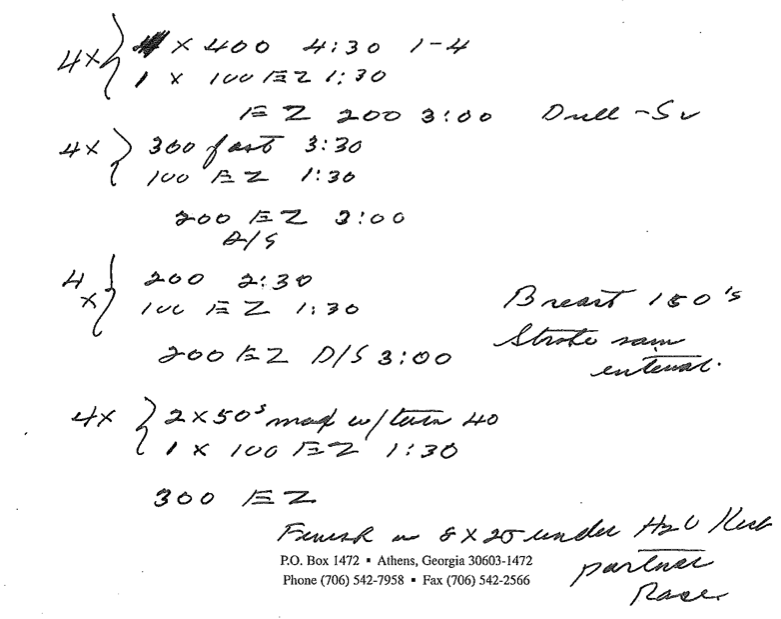 4x { x 400 4:30 1-4
1 x 100 EZ 1:30
EZ 200 3:00 Drill - Sw
4x } 300 fast 3:30
100 EZ 1:30
200 EZ 3:00
D/S
4x } 200 2:30
100 EZ 1:30
200 EZ D/S 3:00
Breast 150's
Stroke sam
enterval.
4x } 2x50s max w/turn 40
1 x 100 EZ 1:30
300 EZ
Finish w 8 x 25 under H2O Kick
partner
Race.
P.O. Box 1472 ▪ Athens, Georgia 30603-1472
Phone (706) 542-7958 ▪ Fax (706) 542-2566